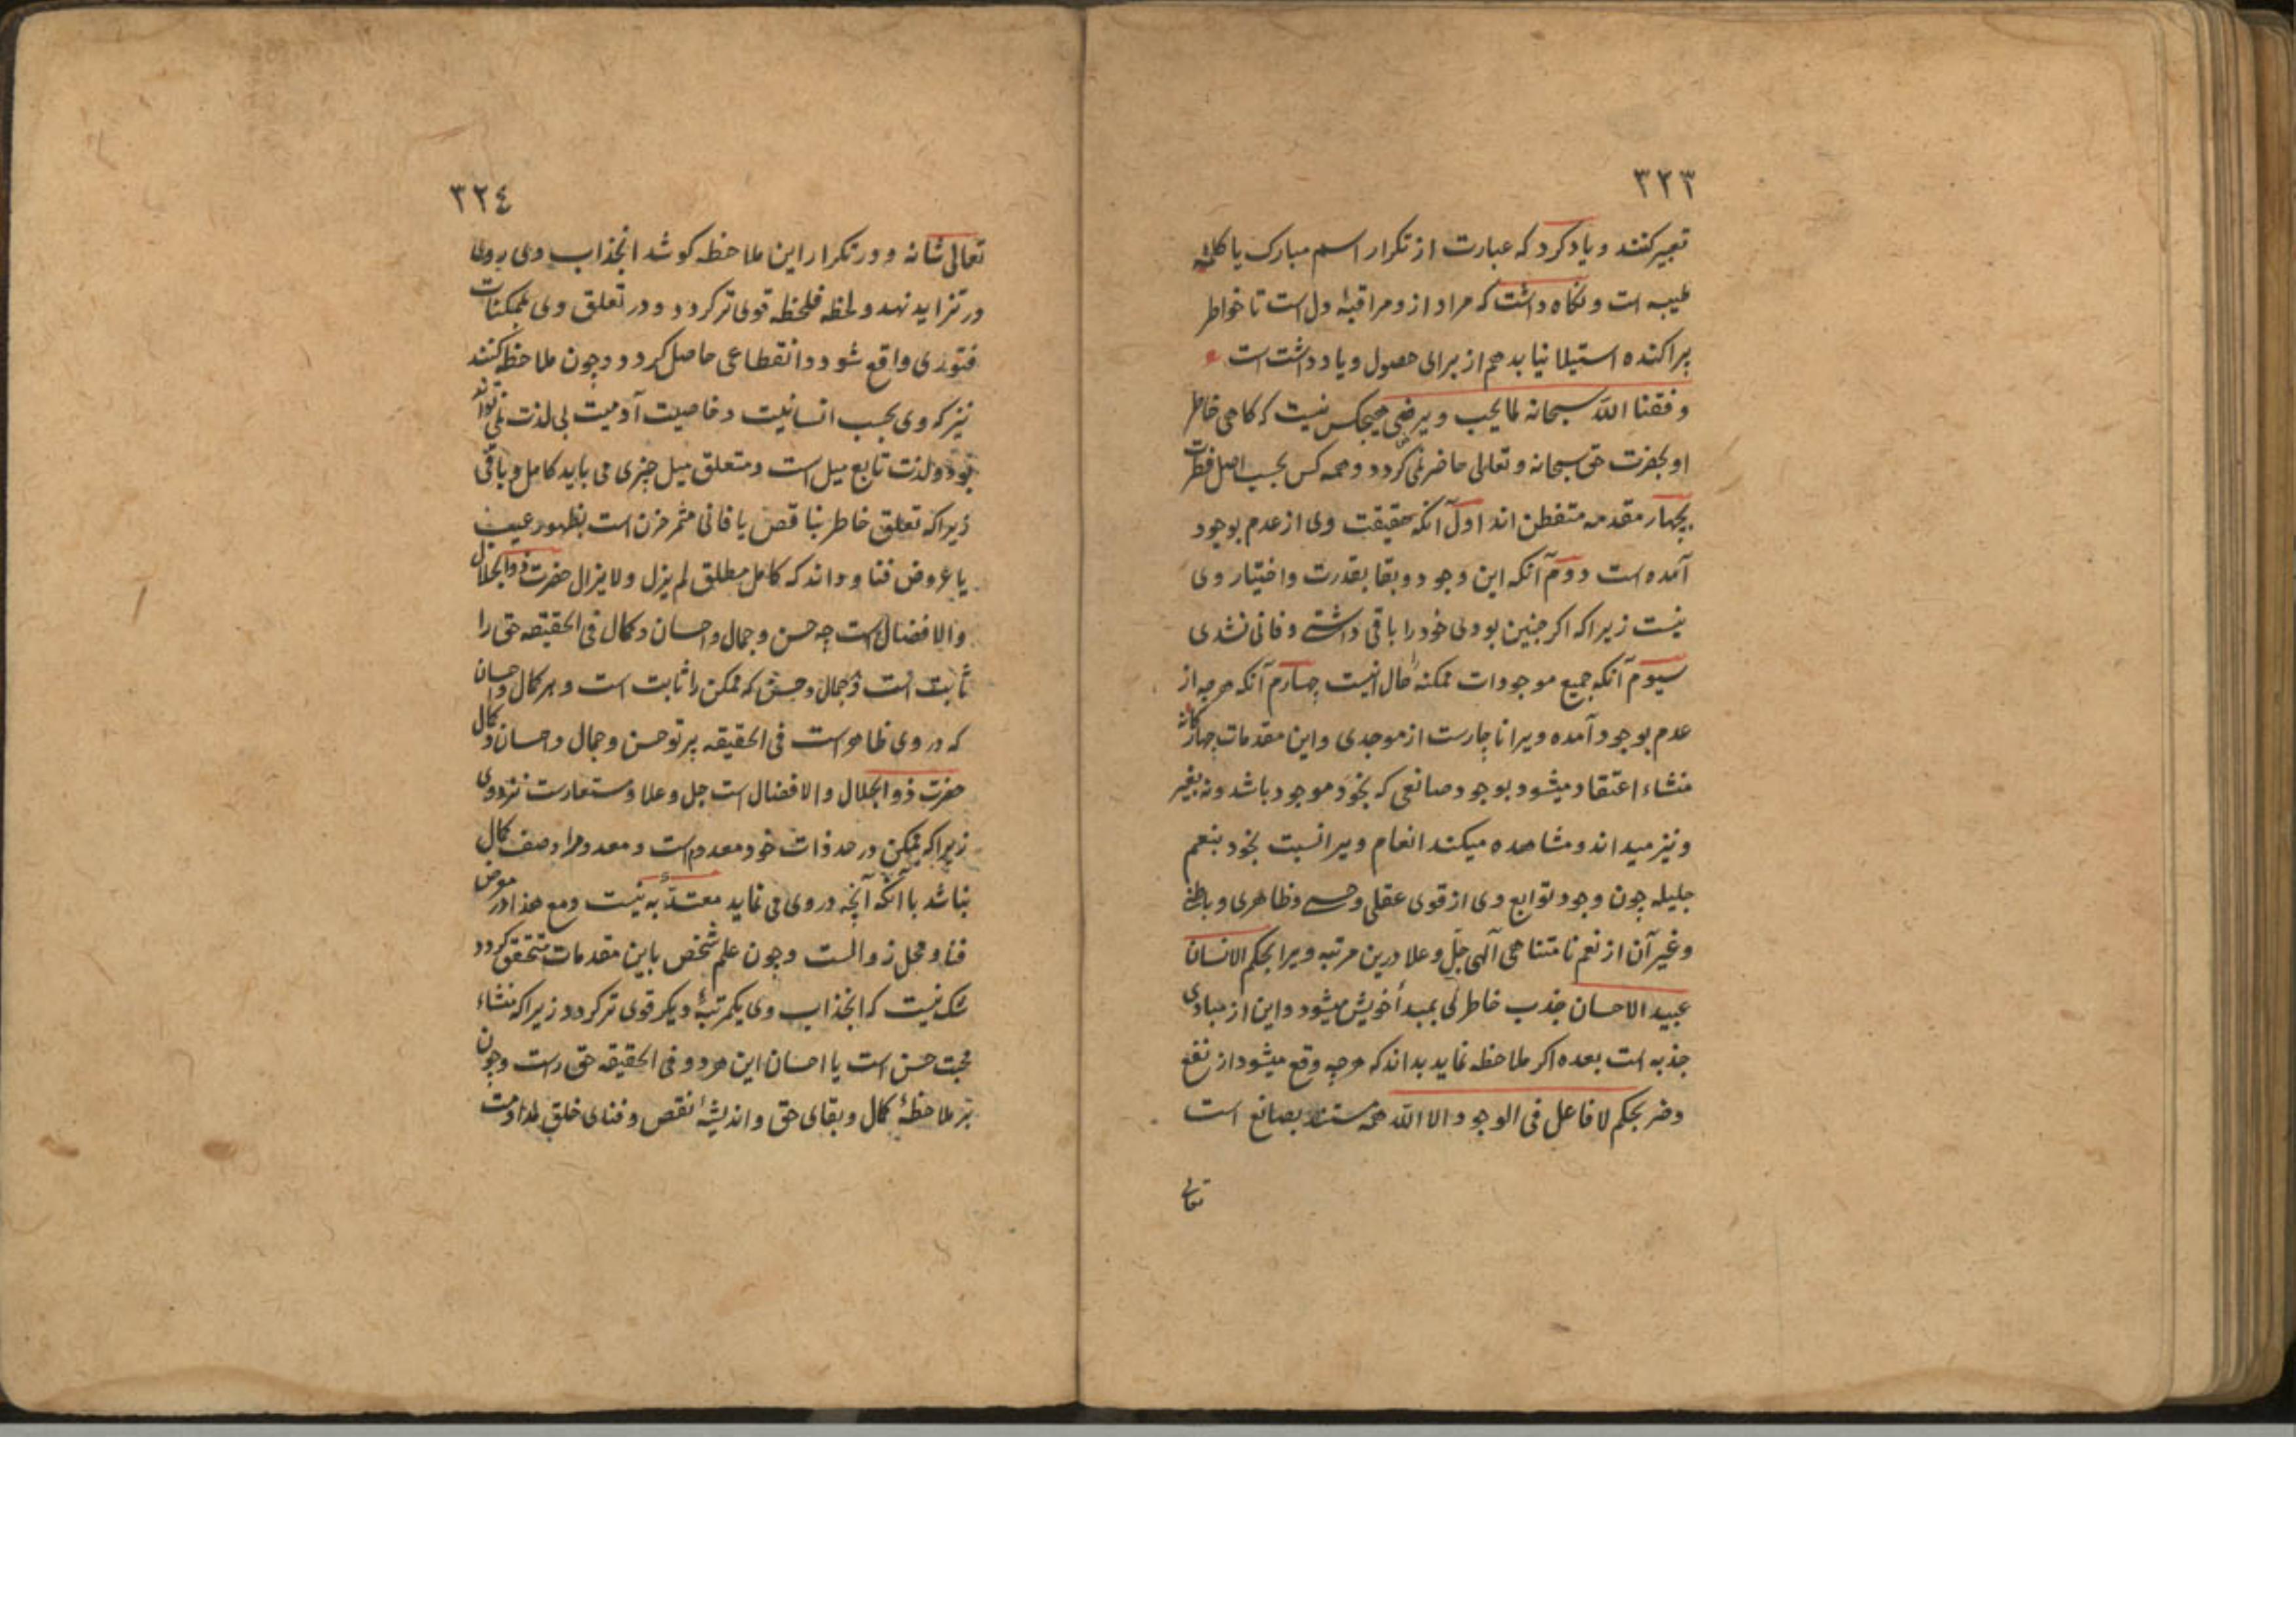 ٣٢٣
تعبیر کنند و یاد کرد که عبارت از تکرار اسم مبارک یا کلمهٔ
طیبه است و نکاه داشت که مراد ازو مراقبهٔ دل است تا خواطر
پراکنده استیلا نیابد هم از برای حصول و یاد داشت است
وفقنا الله سبحانه لما یحب و یرضی هیچکس نیست که کاهی خاطر
او بحضرت حق سبحانه و تعالی حاضر نمی کردد و همه کس بحسب اصل فطرت
بچهار مقدمه متفطن اند اول آنکه حقیقت وی از عدم بوجود
آمده است دوم آنکه این وجود و بقا بقدرت و اختیار وی
نیست زیرا که اکر چنین بودی خود را باقی داشتی و فانی نشدی
سیوم آنکه جمیع موجودات ممکنه را حال اینست چهارم آنکه هرچه از
عدم بوجود آمده ویرا ناچارست از موجدی و این مقدمات چهار کانه
منشاء اعتقاد میشود بوجود صانعی که بخود موجود باشد و نه بغیر
و نیز میداند و مشاهده میکند انعام ویرا نسبت بخود بنعم
جلیله چون وجود و توابع وی از قوی عقلی و حسی و ظاهری و باطنی
و غیر آن از نعم نا متناهی آلهی جل و علا درین مرتبه ویرا بحکم الانسان
عبید الاحسان جذب خاطر لی بمبدأ خویش میشود و این از مبادی
جذبه است بعده اکر ملاحظه نماید بداند که هرچه وقع میشود از نفع
و ضر بحکم لا فاعل فی الوجود الا الله همه مستند بصانع است
تعالی
٣٢٤
تعالی شانه و در تکرار این ملاحظه کوشد انجذاب وی روی
در تزاید نهد و لحظه فلحظه قوی تر کردد و در تعلق وی بممکنات
فتوری واقع شود و انقطاعی حاصل کردد و چون ملاحظه کنند
نیز که وی بحسب انسانیت و خاصیت آدمیت بی لذت نمی تواند
بود و لذت تابع میل است و متعلق میل چیزی می باید کامل و باقی
زیرا که تعلق خاطر بناقص یا فانی مثمر حزن است بظهور عیب
یا عروض فنا و داند که کامل مطلق لم یزل و لا یزال حضرت ذو الجلال
والافضال است چه حسن و جمال و احسان و کمال فی الحقیقه حق را
ثابت است و جمال و حسن که ممکن را ثابت است و هر کمال و احسان
که در وی ظاهر است فی الحقیقه پرتو حسن و جمال و احسان و کمال
حضرت ذو الجلال والافضال است جل و علا و مستعارست نزد وی
زیرا که ممکن در حد ذات خود معدوم است و معدوم را وصف کمال
نباشد با آنکه آنچه در وی می نماید معتدٌ به نیست و مع هذا در معرض
فنا و محل زوالست و چون علم شخص باین مقدمات متحقق کردد
شک نیست که انجذاب وی یکمرتبهٔ دیکر قوی تر کردد زیرا که منشاء
محبت حسن است یا احسان این هر دو فی الحقیقه حق راست و چون
بر ملاحظهٔ کمال و بقای حق و اندیشهٔ نقص و فنای خلق مداومت